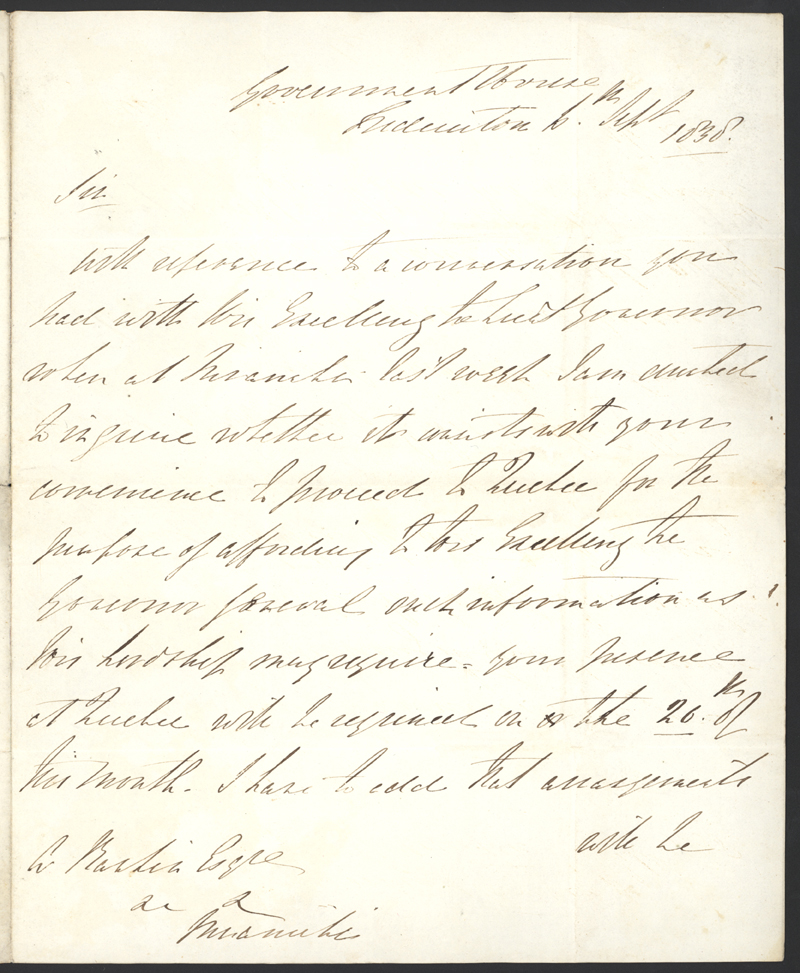 Government House
Fredericton 6.th Sept
1838.
Sir
With reference to a conversation you
had with His Excellency the Lieut Governor
when at Miramichi last week I am directed
to inquire whether it consists with your
convenience to proceed to Quebec for the
purpose of affording to His Excellency the
Governor General such information as
His Lordship may require - your presence
at Quebec will be required on the 20.th of
this month. I have to add that arrangements
will be
Rankin Esqre
&c &c
Miramichi